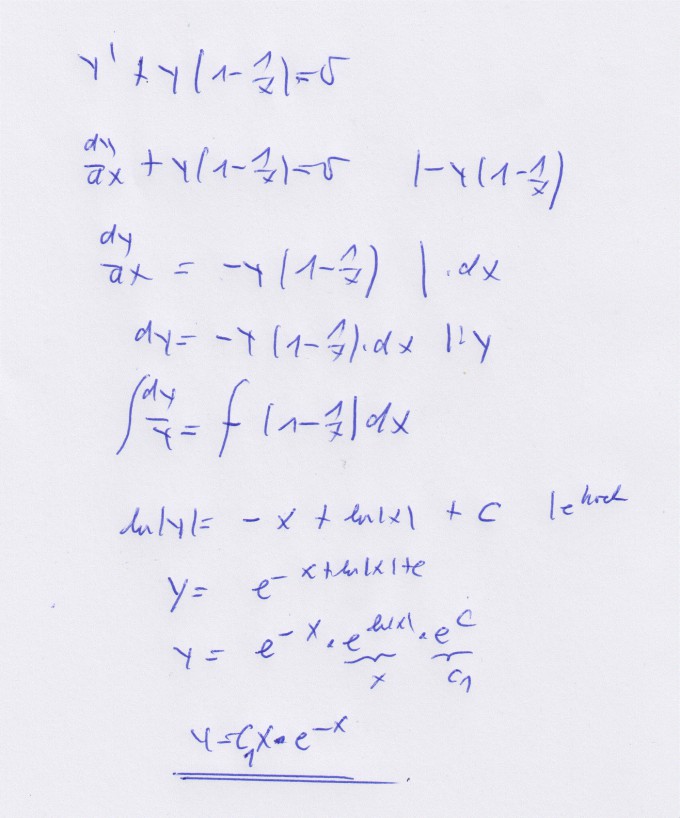 y' + y(1-1/x)=0
dy/dx + y(1-1/x)=0 |-y(1-1/x)
dy/dx = -y(1-1/x) |.dx
dy= -y(1-1/x).dx |:y
∫dy/y = -∫(1-1/x)dx
ln|y|= -x + ln|x| + C |e hoch
y= e^(-x+ln|x|+c)
y= e^(-x) . e^(ln|x|) . e^C
x C₁
y=C₁x.e^(-x)